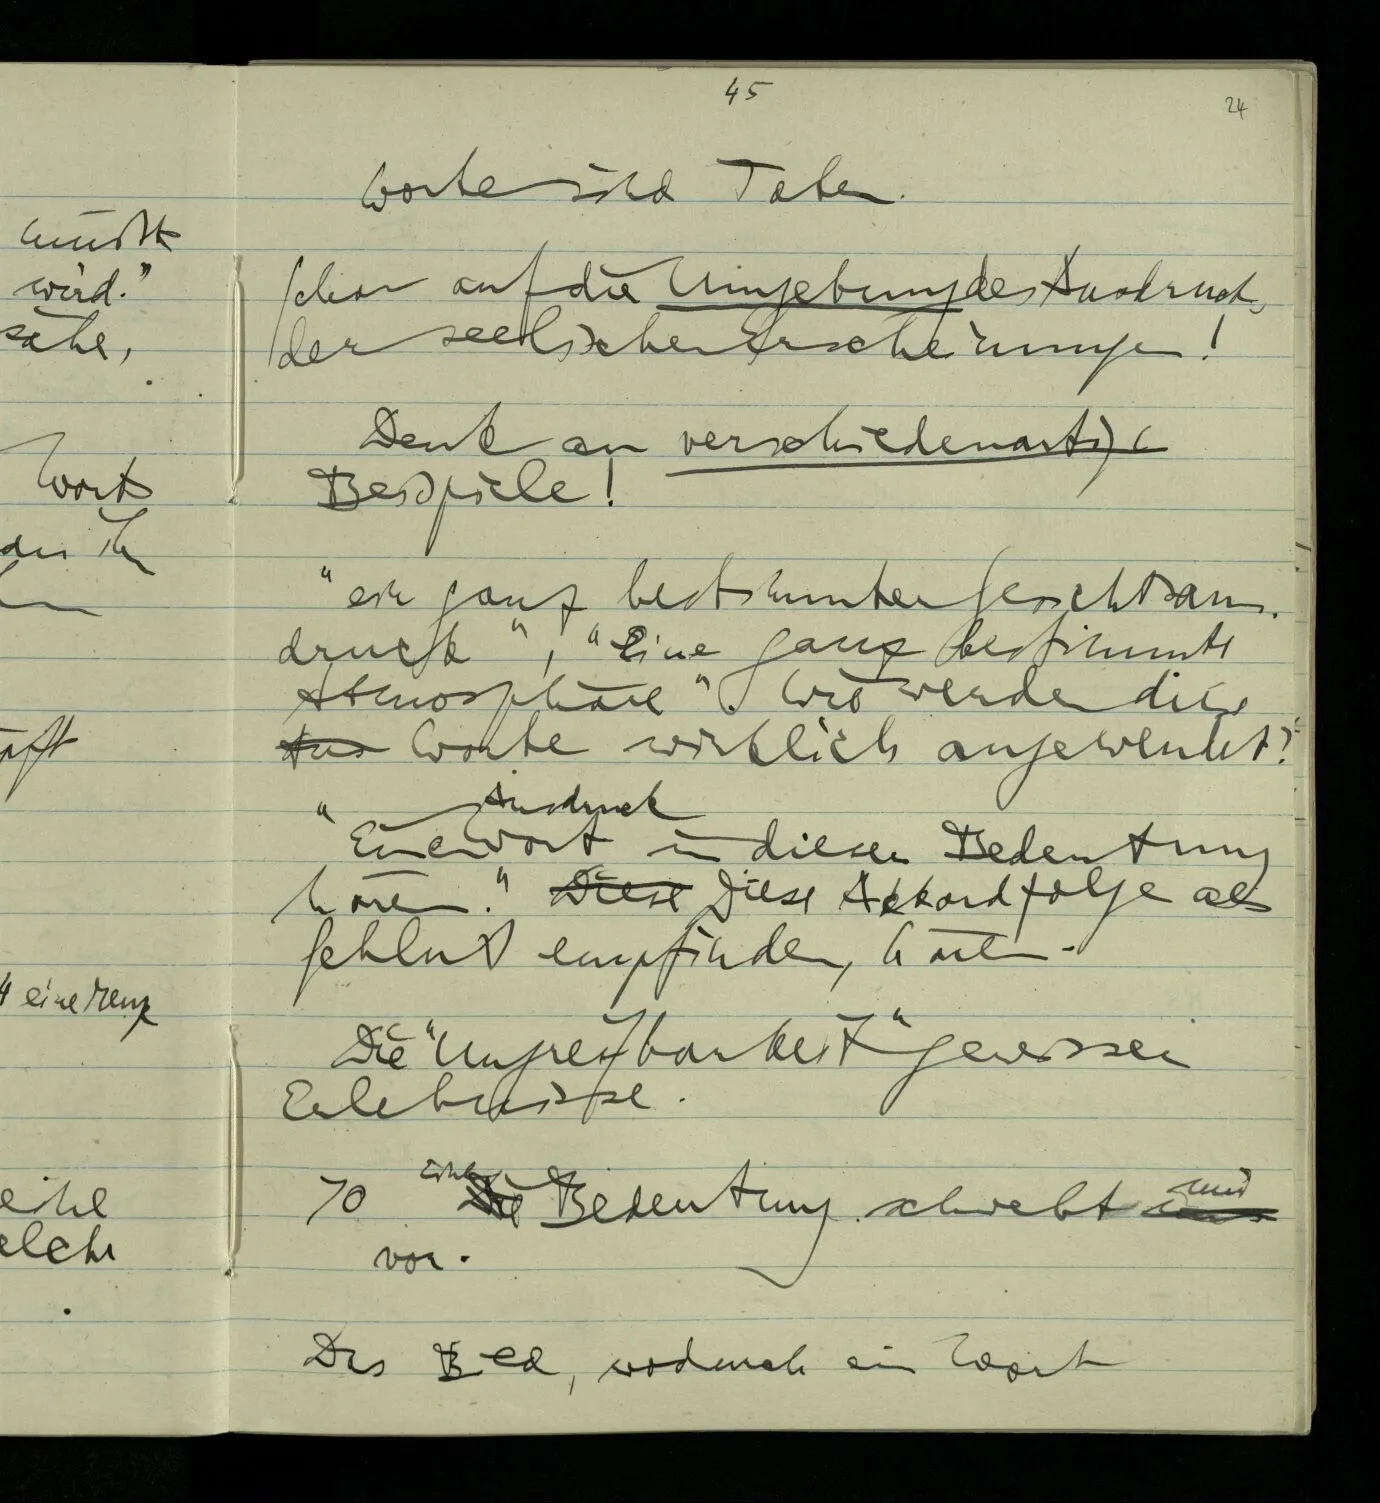 45
24
Worte sind Taten.
Schau auf die Umgebung des Ausdrucks
der seelischen Erscheinungen!
Denk an verschiedenartige
Beispiele!
"ein ganz bestimmter Gesichtsaus-
druck", "Eine ganz bestimmte
Atmosphäre". Wie werden diese
Aus Worte wirklich angewendet?
Ausdruck
"Einen Wort in dieser Bedeutung
hören." Diese Diese Akkordfolge als
Schluß empfinden, hören.
Die "Ungreifbarkeit" gewisser
Erlebnisse.
Eine mir
70 Die Bedeutung schwebt
vor.
Das Bild, wodurch ein Wort
wird."
Wort
eine